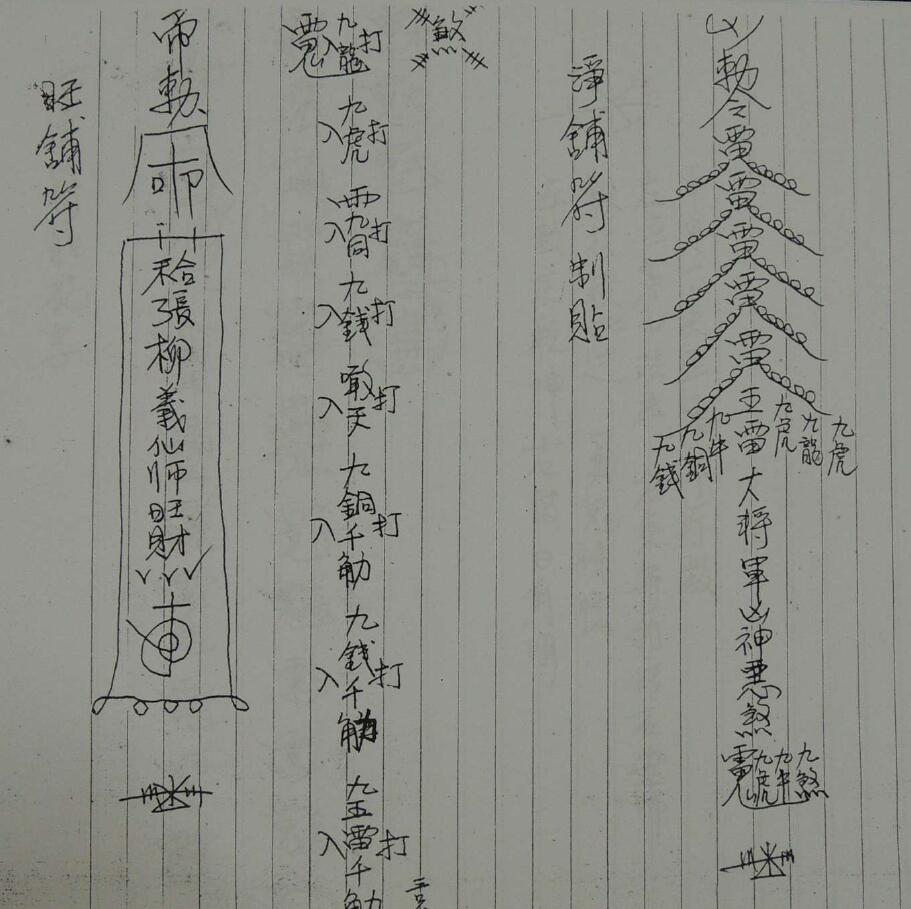 勅令雷
雷
雷
雷
雷
王雷大將軍凶神惡煞
九虎
九龍
九虎
九牛
九銅
九錢
九虎
九牛
九煞
淨舖符制貼
煞
九龍
入打
九虎
入打
入打
九錢
入打
入打
九銅千觔
入打
九錢千觔
入打
九五雷千觔
入打
勅
給張柳義仙師旺財
旺舖符